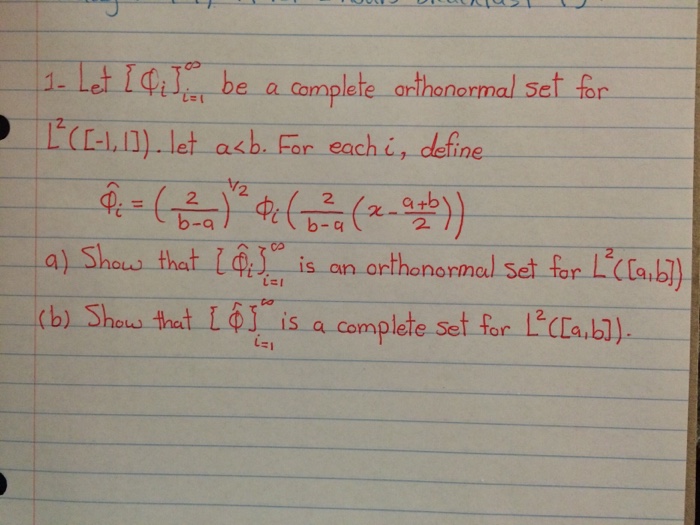 1- Let [ϕi]∞i=1 be a complete orthonormal set for
L²([-1,1]). let a<b. For each i, define
ϕ̂i = (2/b-a)^1/2 ϕi(2/b-a (x - a+b/2))
a) Show that [ϕ̂i]∞i=1 is an orthonormal set for L²([a,b])
(b) Show that [ϕ̂]∞i=1 is a complete set for L²([a,b]).